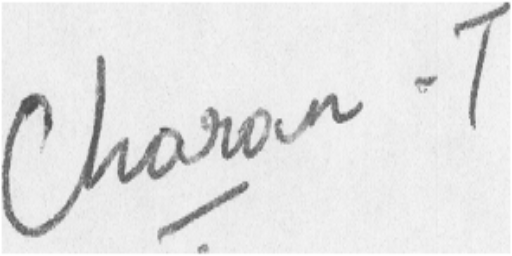 Charan -T